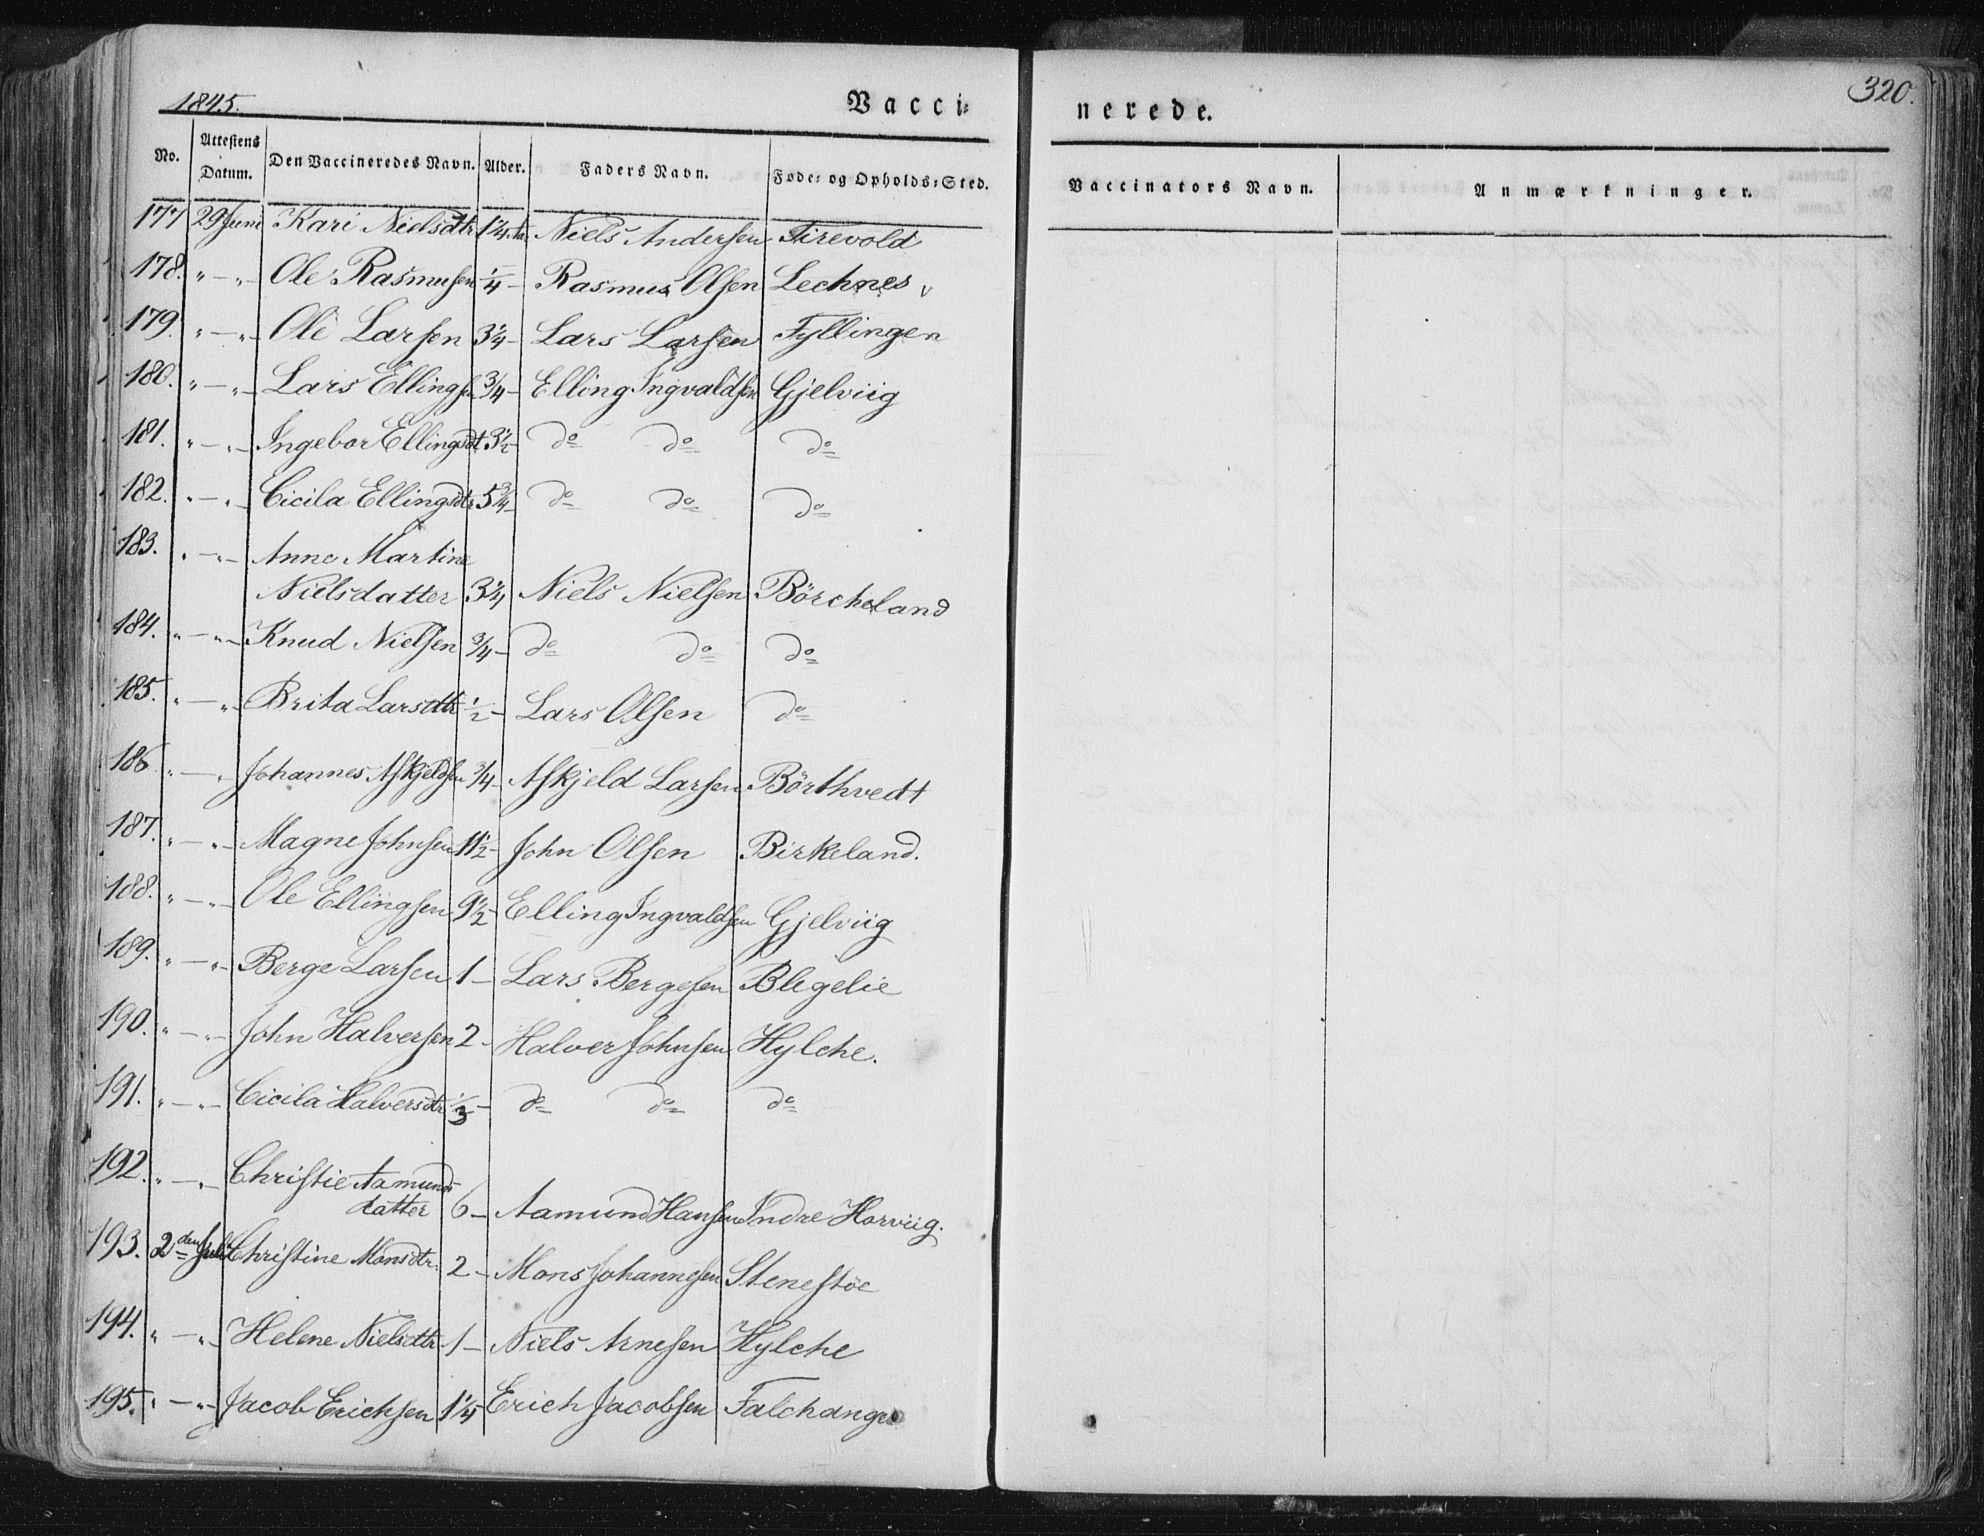 1845.
Vacci=
nerede.
320.
No. Attestens Datum. Den Vaccineredes Navn. Alder. Faders Navn. Føde= og Opholds=Sted. Vaccinators Navn. Anmærkninger.
177 29 Juni Kari Nielsdtr 1 1/4 Niels Andersen Tirevold
178. " — " — Ole Rasmusen 1/4 — Rasmus Olsen Lechnes
179. " — " — Ole Larsen 3 1/4 — Lars Larsen Fyllingen
180. " — " — Lars Ellingsen 3/4 — Elling Ingvaldsen Gjelviig
181. " — " — Ingebor Ellingsdt 3 1/2 — do do do
182. " — " — Cicila Ellingsdtr 5 3/4 — do do do
183. " — " — Anne Martine
Nielsdatter 3 1/4 Niels Nielsen Börcheland
184. " — " — Knud Nielsen 3/4 — do do do
185. " — " — Brita Larsdtr 1/2 — Lars Olsen do
186 " — " — Johannes Askjeldsen 3/4 — Askjeld Larsen Börthvedt
187. " — " — Magne Johnsen 11 1/2 — John Olsen Birkeland.
188. " — " — Ole Ellingsen 9 1/2 — Elling Ingvaldsen Gjelviig
189. " — " — Berge Larsen 1 — Lars Bergesen Blegelie
190. " — " — John Halversen 2 — Halver Johnsen Hylche.
191. " — " — Cicila Halversdtr 1/3 — do do do
192. " — " — Christie Aamunds
datter 6 — Aamund Hansen Indre Horviig.
193. 2den Juli Christine Monsdtr. 2 — Mons Johannesen Stenestöe
194. " — " — Helene Nielsdtr 1 — Niels Arnesen Hylche
195. " — " — Jacob Erichsen 1 1/4 Erich Jacobsen Falchanger